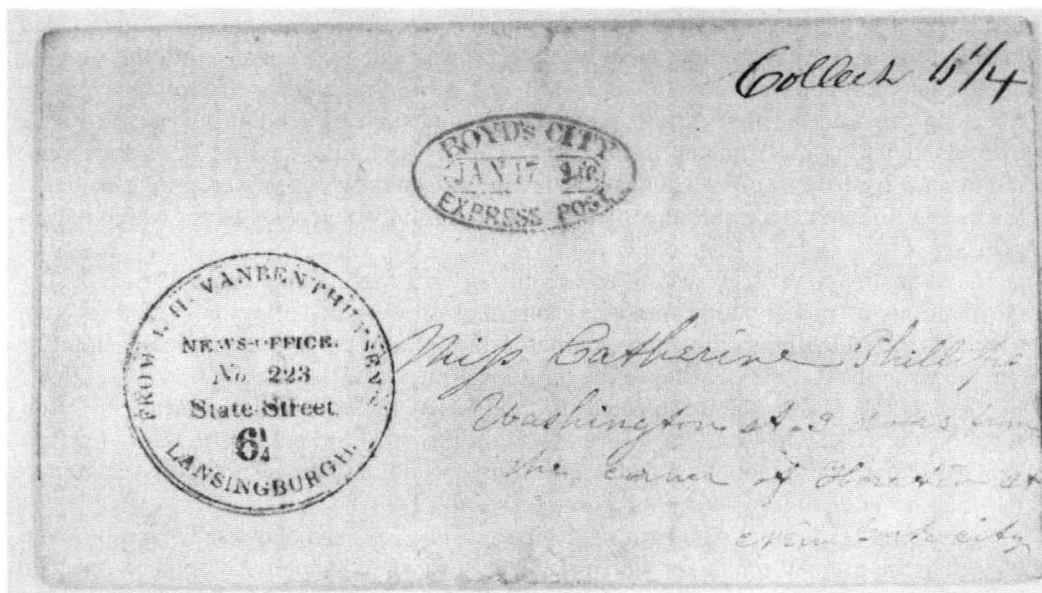 Collect 6 1/4
BOYD'S CITY
JAN 17
EXPRESS POST
FROM A. H. VANBENTHUYSEN'S
NEWS-OFFICE.
No 223
State Street.
6 1/4
LANSINGBURGH.
Miss Catherine
Washington st. 2 doors from
the corner of Horatio st
New York city